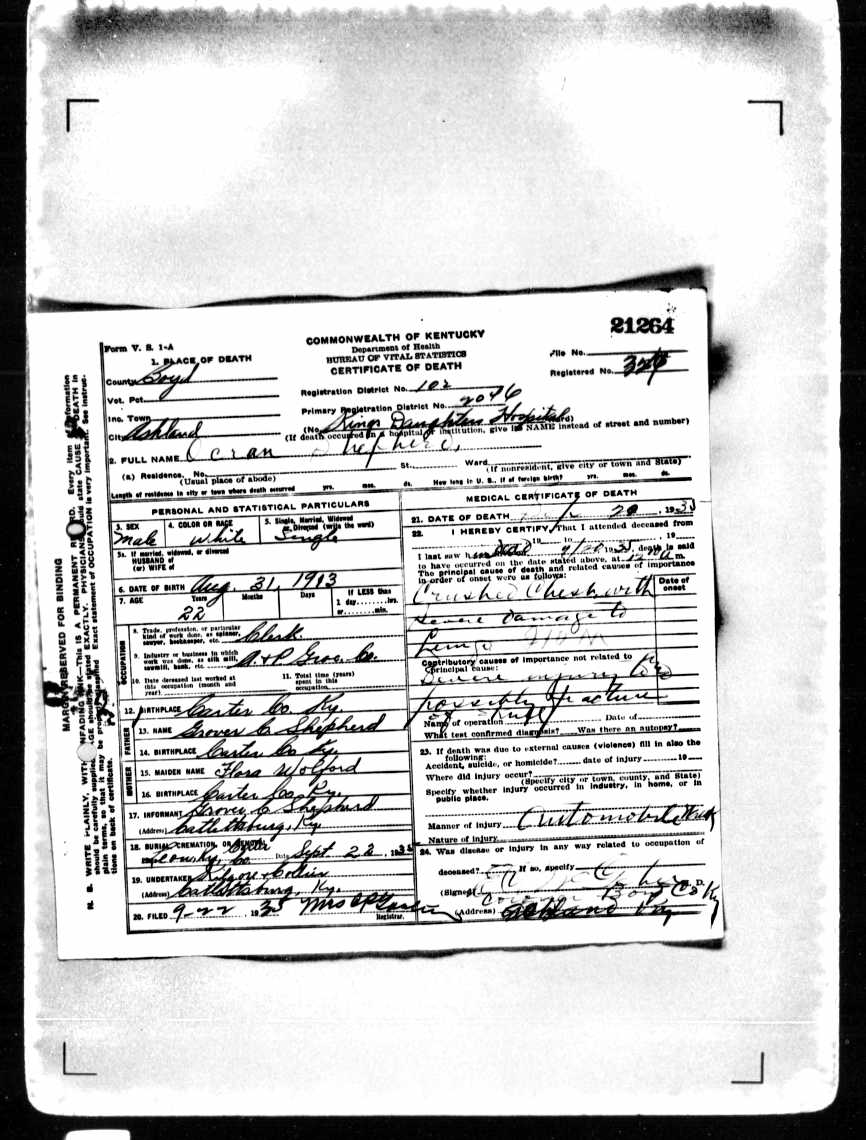 21264
Form V. S. 1-A
COMMONWEALTH OF KENTUCKY
Department of Health
BUREAU OF VITAL STATISTICS
CERTIFICATE OF DEATH
File No.
Registered No. 326
1. PLACE OF DEATH
County Boyd
Vot. Pct.
Inc. Town
City Ashland
Registration District No. 102
Primary Registration District No. 2046
(No. Kings Daughters Hospital Ward)
(If death occurred in a hospital or institution, give its NAME instead of street and number)
2. FULL NAME Ocran Shepherd
(a) Residence, No. St. Ward
(Usual place of abode)
(If nonresident, give city or town and State)
Length of residence in city or town where death occurred yrs. mos. ds. How long in U. S., if of foreign birth? yrs. mos. ds.
PERSONAL AND STATISTICAL PARTICULARS
3. SEX
Male
4. COLOR OR RACE
White
5. Single, Married, Widowed or Divorced (write the word)
Single
5a. If married, widowed, or divorced
HUSBAND of
(or) WIFE of
6. DATE OF BIRTH Aug. 31, 1913
7. AGE Years Months Days
22
If LESS than
1 day hrs.
or min.
OCCUPATION
8. Trade, profession, or particular
kind of work done, as spinner,
sawyer, bookkeeper, etc. Clerk
9. Industry or business in which
work was done, as silk mill,
sawmill, bank, etc. A. & P. Groc. Co.
10. Date deceased last worked at
this occupation (month and
year)
11. Total time (years)
spent in this
occupation
12. BIRTHPLACE Carter Co. Ky.
FATHER
13. NAME Grover C. Shepherd
14. BIRTHPLACE Carter Co Ky.
MOTHER
15. MAIDEN NAME Flora Wolford
16. BIRTHPLACE Carter Co. Ky.
17. INFORMANT Grover C Shepherd
(Address) Catlettsburg, Ky.
18. BURIAL, CREMATION, OR REMOVAL
Date Sept. 22, 1935
19. UNDERTAKER Kilgore & Collier
(Address) Catlettsburg, Ky.
20. FILED 9-22 1935 Mrs
Registrar.
MEDICAL CERTIFICATE OF DEATH
21. DATE OF DEATH 20, 1935
22. I HEREBY CERTIFY, That I attended deceased from
19 to 19
I last saw h 9/20 1935, death is said
to have occurred on the date stated above, at 12 m.
The principal cause of death and related causes of importance
in order of onset were as follows:
Date of
onset
Crushed Chest with
severe damage to
Lungs
Contributory causes of importance not related to
principal cause:
Severe injury to
possibly fracture
of
Name of operation Date of
What test confirmed diagnosis? Was there an autopsy?
23. If death was due to external causes (violence) fill in also the
following:
Accident, suicide, or homicide? date of injury 19
Where did injury occur?
(Specify city or town, county, and State)
Specify whether injury occurred in industry, in home, or in
public place.
Manner of injury Automobile
Nature of injury
24. Was disease or injury in any way related to occupation of
deceased? If so, specify
(Signed) M. D.
Boyd Co Ky
(Address) Ashland Ky
MARGIN RESERVED FOR BINDING